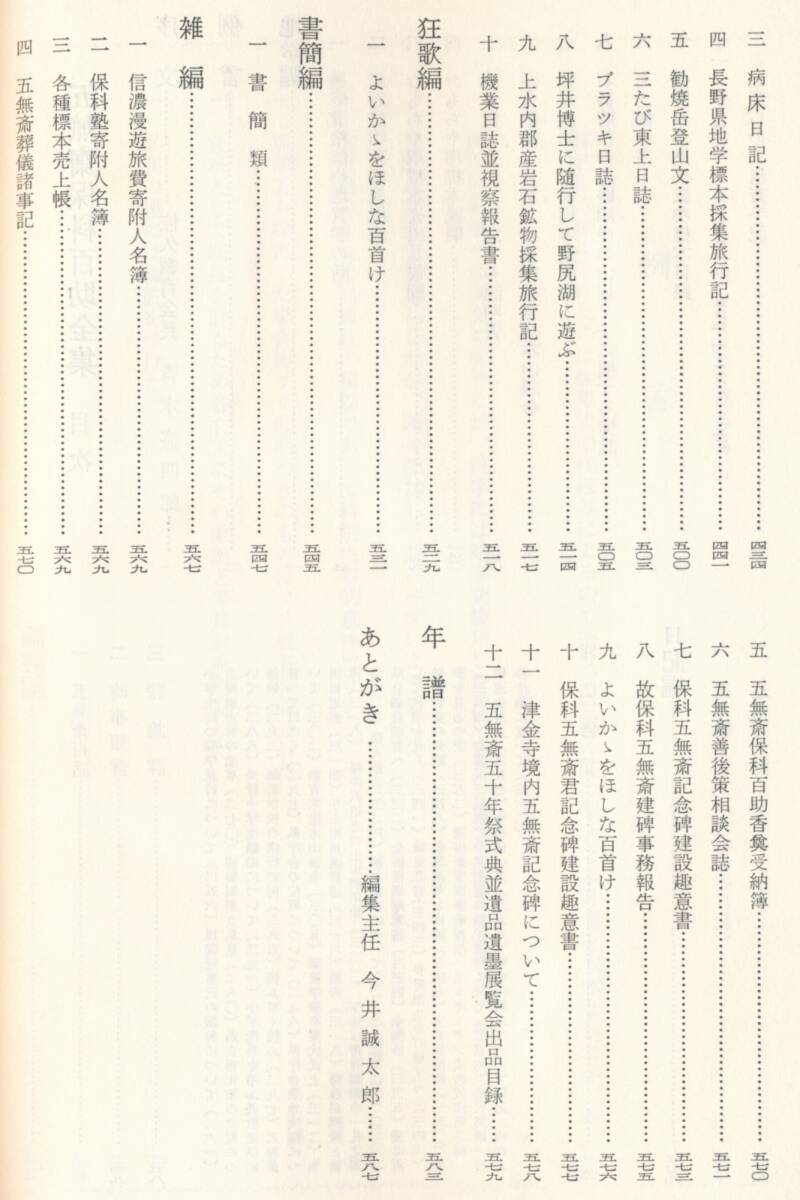 三 病床日記……四三四
四 長野県地学標本採集旅行記……四四一
五 勧焼岳登山文……五〇〇
六 三たび東上日誌……五〇三
七 ブラツキ日誌……五〇五
八 坪井博士に随行して野尻湖に遊ぶ……五一四
九 上水内郡産岩石鉱物採集旅行記……五一七
十 機業日誌並視察報告書……五一八
狂歌編……五二九
一 よいかゝをほしな百首け……五三一
書簡編……五四五
一 書簡類……五四七
雑編……五六七
一 信濃漫遊旅費寄附人名簿……五六九
二 保科塾寄附人名簿……五六九
三 各種標本売上帳……五六九
四 五無斎葬儀諸事記……五七〇
五 五無斎保科百助香奠受納簿……五七〇
六 五無斎善後策相談会誌……五七一
七 保科五無斎記念碑建設趣意書……五七三
八 故保科五無斎建碑事務報告……五七五
九 よいかゝをほしな百首け……五七六
十 保科五無斎君記念碑建設趣意書……五七七
十一 津金寺境内五無斎記念碑について……五七八
十二 五無斎五十年祭式典並遺品遺墨展覧会出品目録……五七九
年譜……五八三
あとがき……編集主任 今井誠太郎……五八七